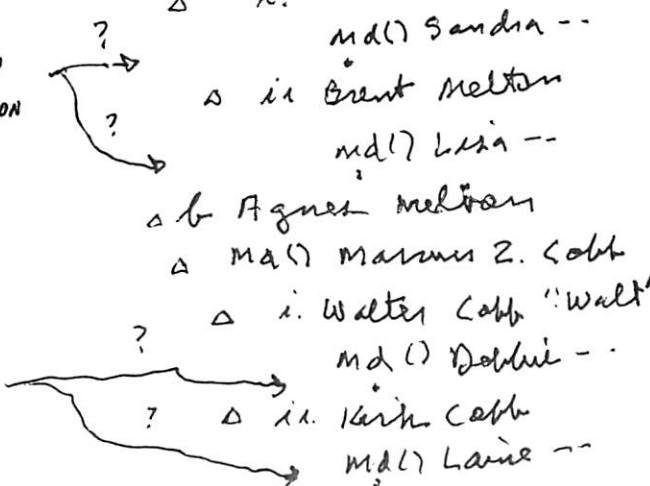 ? △ i.
md() Sandra --
△ ii Brent Melton
ON
? md() Lisa --
△ b Agnes Melton
△ Md() Marcus Z. Cobb
△ i. Walter Cobb "Walt"
? md() Debbie --
? △ ii. Kirk Cobb
md() Laine --